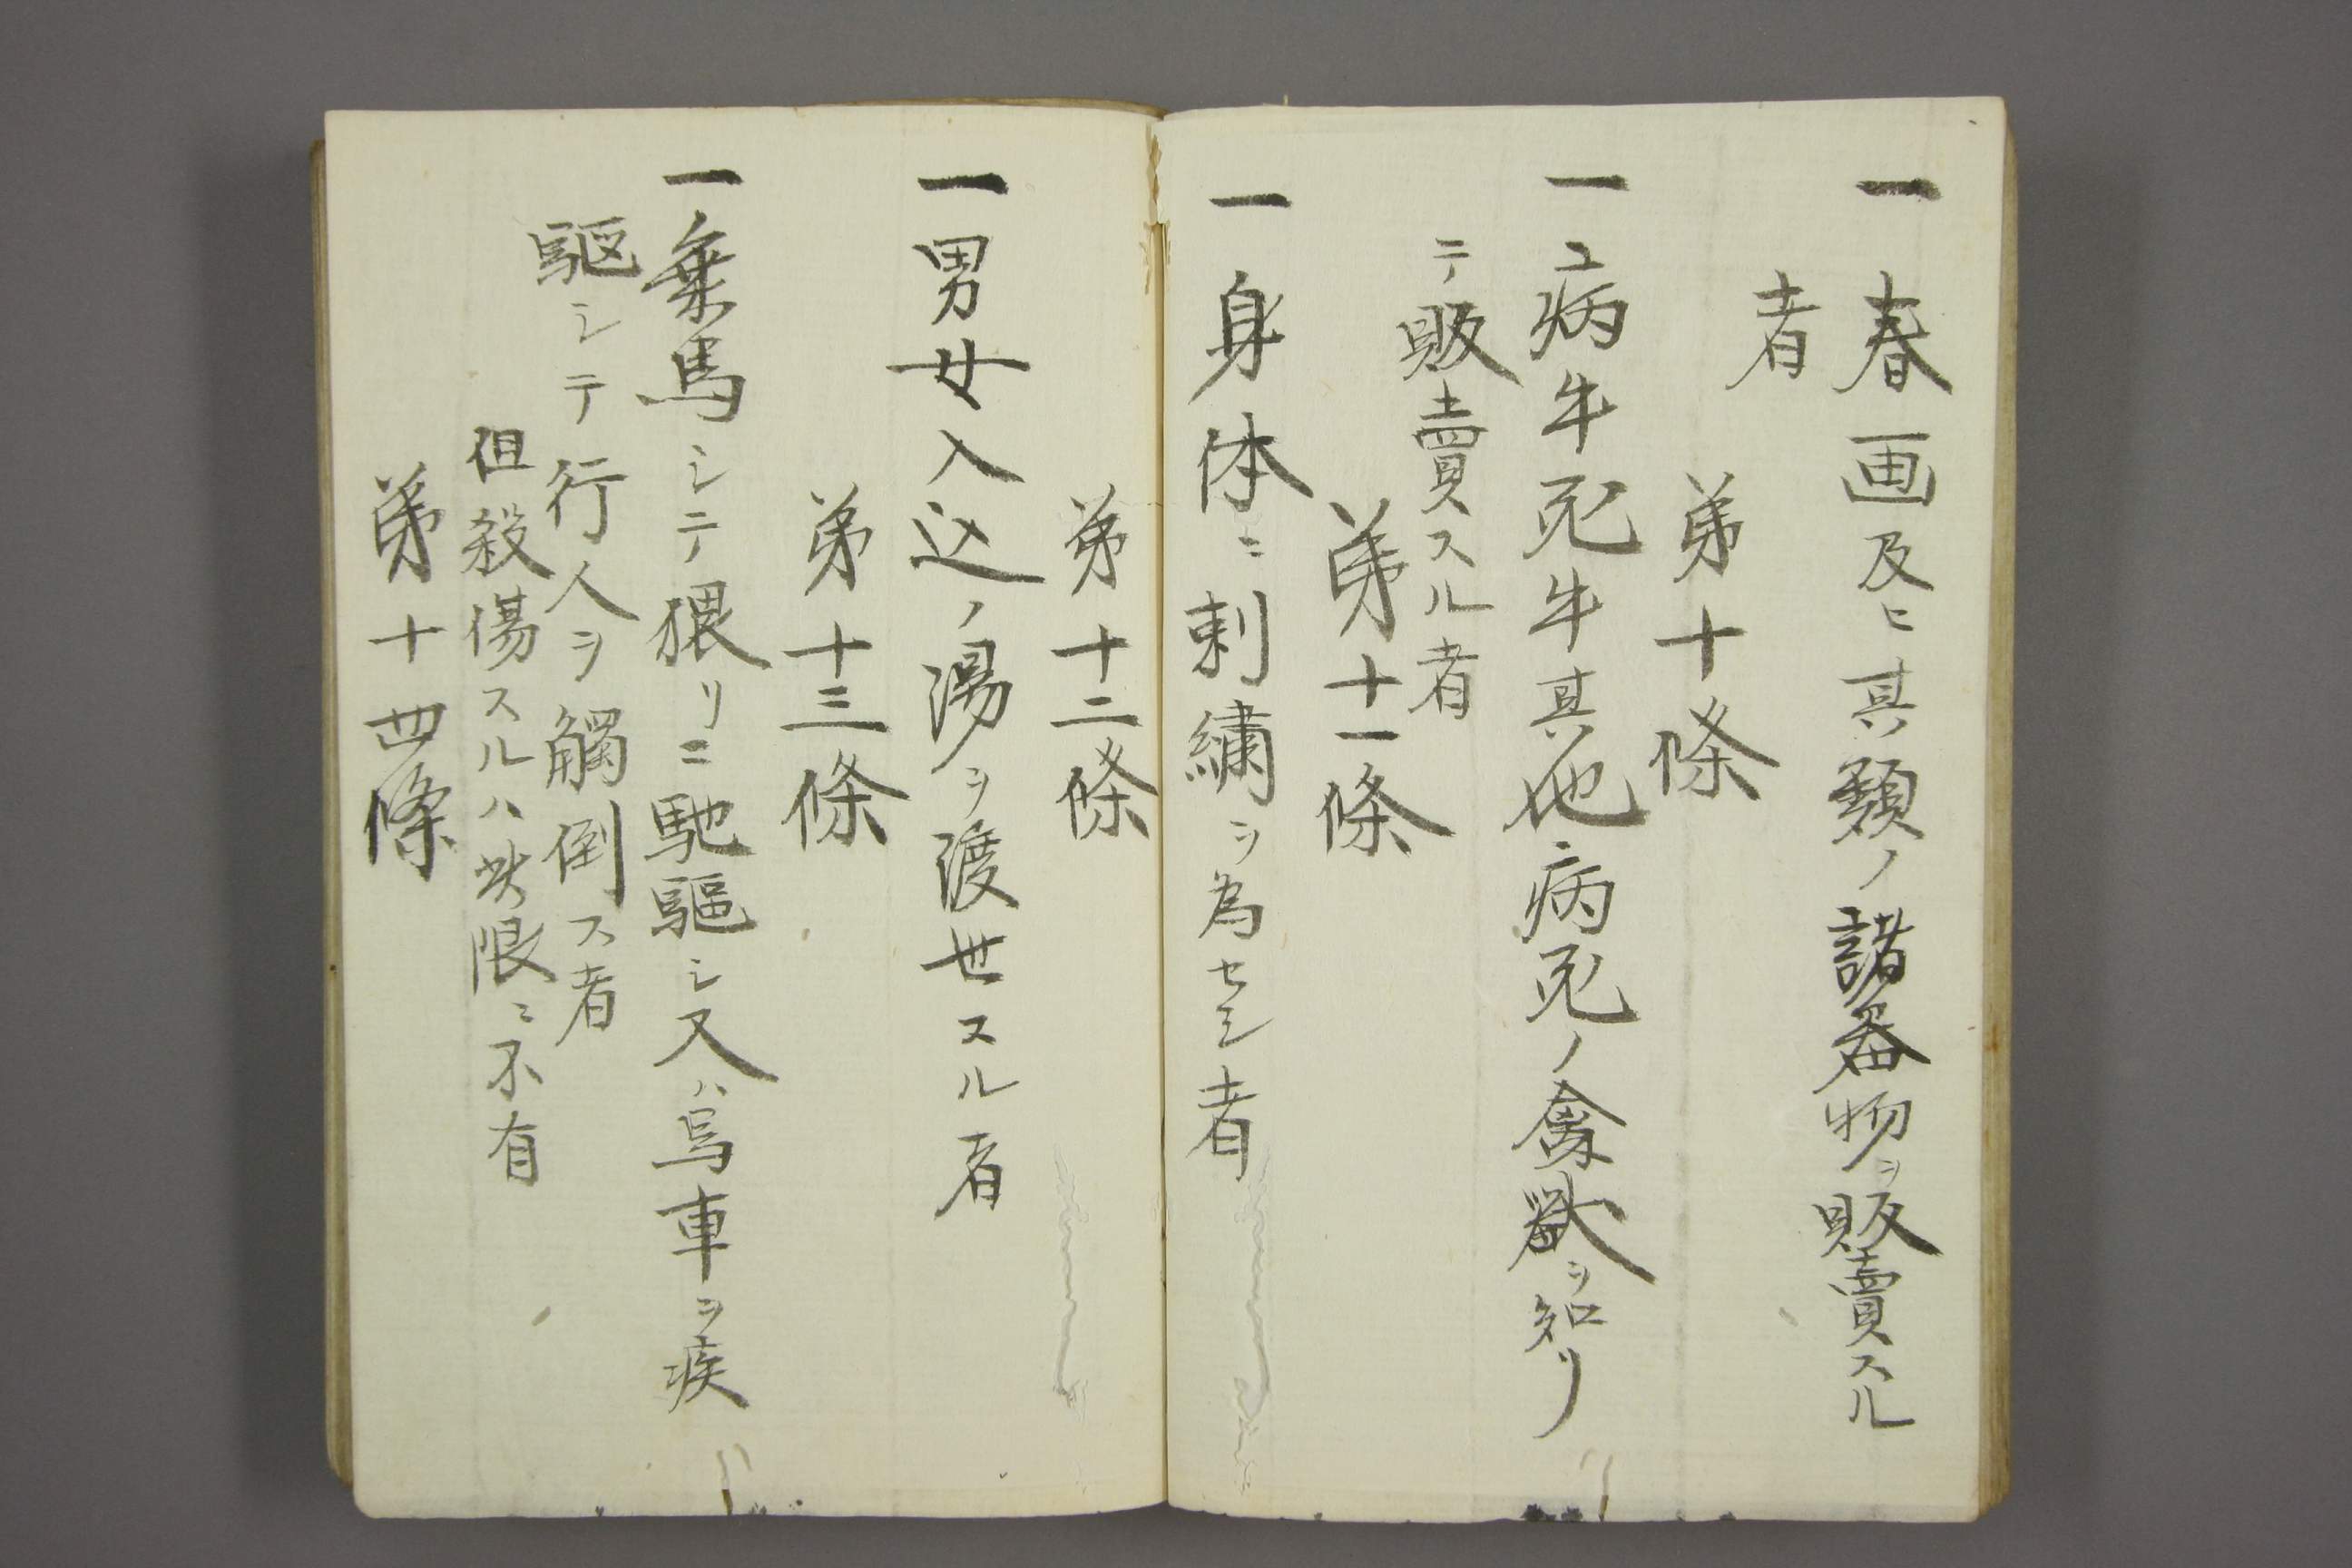 一 春画及ヒ其類ノ諸器物ヲ販賣スル
者
第十條
一 病牛死牛其他病死ノ禽獣ヲ知リ
テ販賣スル者
第十一條
一 身体ニ刺繍ヲ為セシ者
第十二條
一 男女入込ノ湯ヲ渡世スル者
第十三條
一 乗馬シテ猥リニ馳驅シ又ハ馬車ヲ疾
駆シテ行人ヲ觸倒ス者
但殺傷スルハ此限ニ不有
第十四條